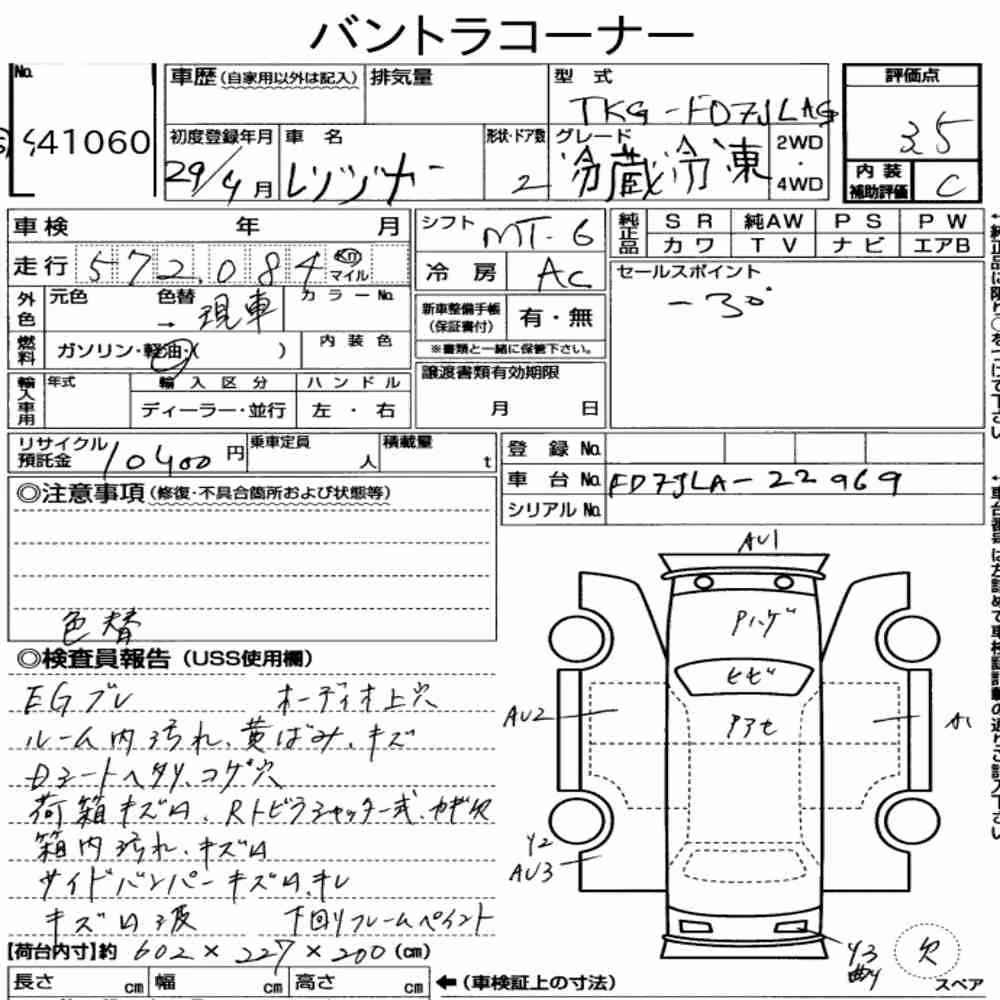 バントラコーナー
No. 41060
車歴 (自家用以外は記入) 排気量 型式 TKG-FD7JLAG 評価点 3.5
初度登録年月 29/4月 車名 レンジャー 形状・ドア数 2 グレード 冷蔵冷凍 2WD・4WD 内装補助評価 C
車検 年 月 シフト MT-6 純正品 SR 純AW PS PW
カワ TV ナビ エアB
走行 572,084 km マイル 冷房 AC セールスポイント
-30°
外色 元色 色替 → 現車 カラーNo. 新車整備手帳 (保証書付) 有・無
※書類と一緒に保管下さい。
燃料 ガソリン・軽油・( ) 内装色
譲渡書類有効期限 月 日
輸入車用 年式 輸入区分 ハンドル
ディーラー・並行 左・右
リサイクル預託金 10400円 乗車定員 人 積載量 t 登録No.
車台No. FD7JLA-22969
シリアルNo.
◎注意事項 (修復・不具合箇所および状態等)
色替
◎検査員報告 (USS使用欄)
EGブレ オーディオ上穴
ルーム内汚れ、黄ばみ、キズ
Dシートヘタリ、コゲ穴
荷箱キズ凹、Rトビラシャッター式、カギ欠
箱内汚れ、キズ凹
サイドバンパーキズ凹、キレ
キズ凹波 下回りフレームペイント
【荷台内寸】約 602×227×200 (cm)
長さ cm 幅 cm 高さ cm ← (車検証上の寸法)
AU1
Pハゲ
ヒビ
Pアセ
AU2
A1
Y2
AU3
Y3
欠
スペア